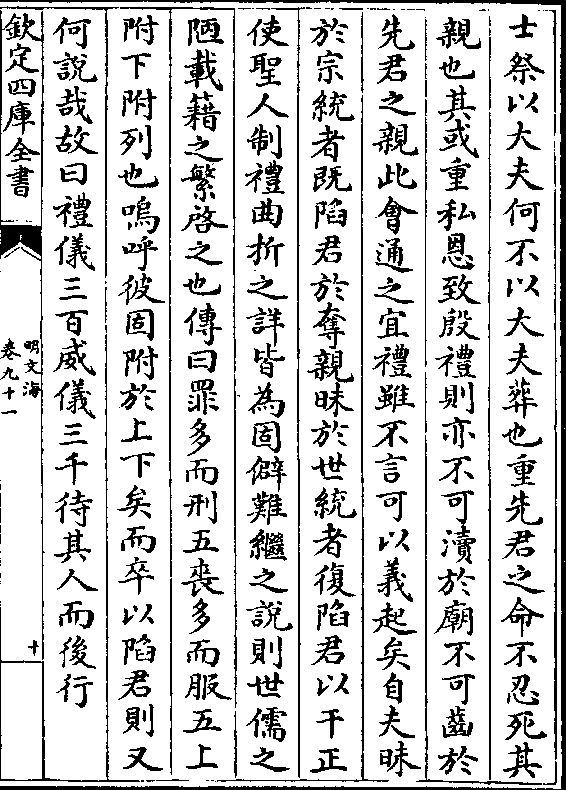 士祭以大夫何不以大夫葬也重先君之命不忍死其
親也其或重私恩致殷禮則亦不可瀆於廟不可齒於
先君之親此會通之宜禮雖不言可以義起矣自夫昧
於宗統者既陷君於奪親昧於世統者復陷君以干正
使聖人制禮曲折之詳皆為固僻難繼之說則世儒之
陋載籍之繁啓之也傳曰罪多而刑五喪多而服五上
附下附列也嗚呼彼固附於上下矣而卒以陷君則又
何說哉故曰禮儀三百威儀三千待其人而後行
欽定四庫全書
明文海
卷九十一
十